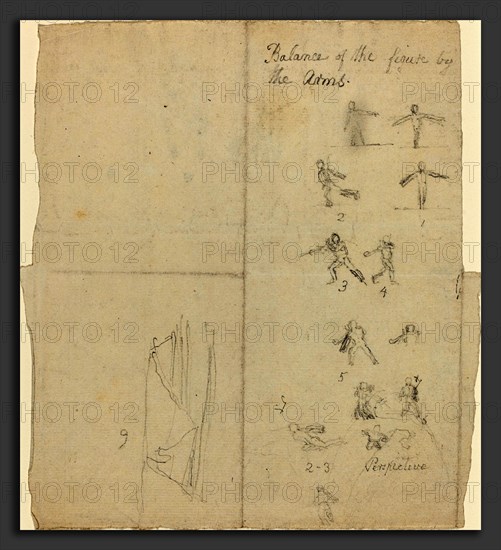 Balance of the figure by
the Arms.
2
1
3
4
5
2-3
Perspective
6
PHOTO 12